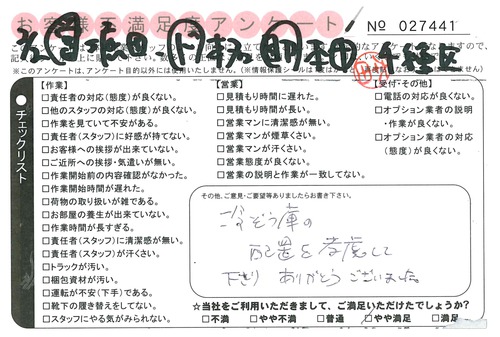 お客様満足度アンケート
No 027441
※このアンケートは、アンケート目的以外には使用いたしません。
千種区
チェックリスト
【作業】
□責任者の対応(態度)が良くない。
□他のスタッフの対応(態度)が良くない。
□作業を見ていて不安がある。
□責任者(スタッフ)に好感が持てない。
□お客様への挨拶が出来ていない。
□ご近所への挨拶・気遣いが無い。
□作業開始前の内容確認がなかった。
□作業開始時間が遅れた。
□荷物の取り扱いが雑である。
□お部屋の養生が出来ていない。
□作業時間が長すぎる。
□責任者(スタッフ)に清潔感が無い。
□責任者(スタッフ)が汗くさい。
□トラックが汚い。
□梱包資材が汚い。
□運転が不安(下手)である。
□靴下の履き替えをしてない。
□スタッフにやる気がみられない。
【営業】
□見積もり時間に遅れた。
□見積もり時間が長い。
□営業マンに清潔感が無い。
□営業マンが煙草くさい。
□営業マンが汗くさい。
□営業態度が良くない。
□営業の説明と作業が一致してない。
【受付・その他】
□電話の対応が良くない。
□オプション業者の説明
・作業が良くない。
□オプション業者の対応
(態度)が良くない。
その他、ご意見・ご要望等ありましたらお書き下さい。
冷ぞう庫の
配置を考慮して
下さり ありがとうございました。
☆当社をご利用いただきまして、ご満足いただけたでしょうか?
□不満 □やや不満 □普通 □やや満足 □満足